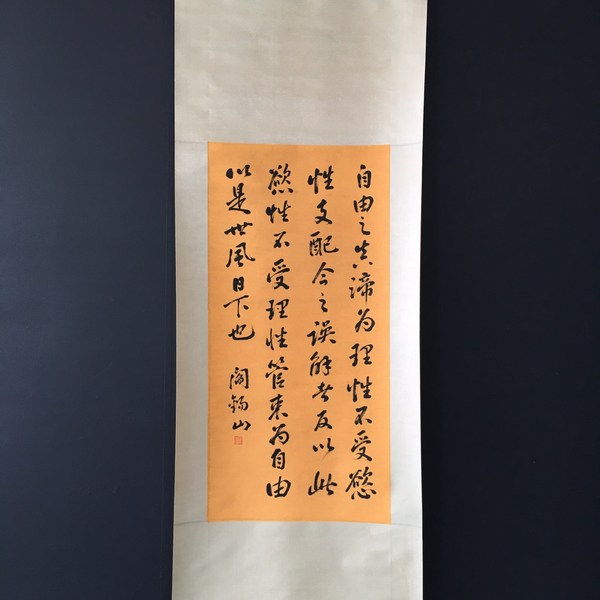 自由之真諦为理性不受慾
性支配今之误解者反以此
慾性不受理性管束为自由
以是世风日下也
阎锡山